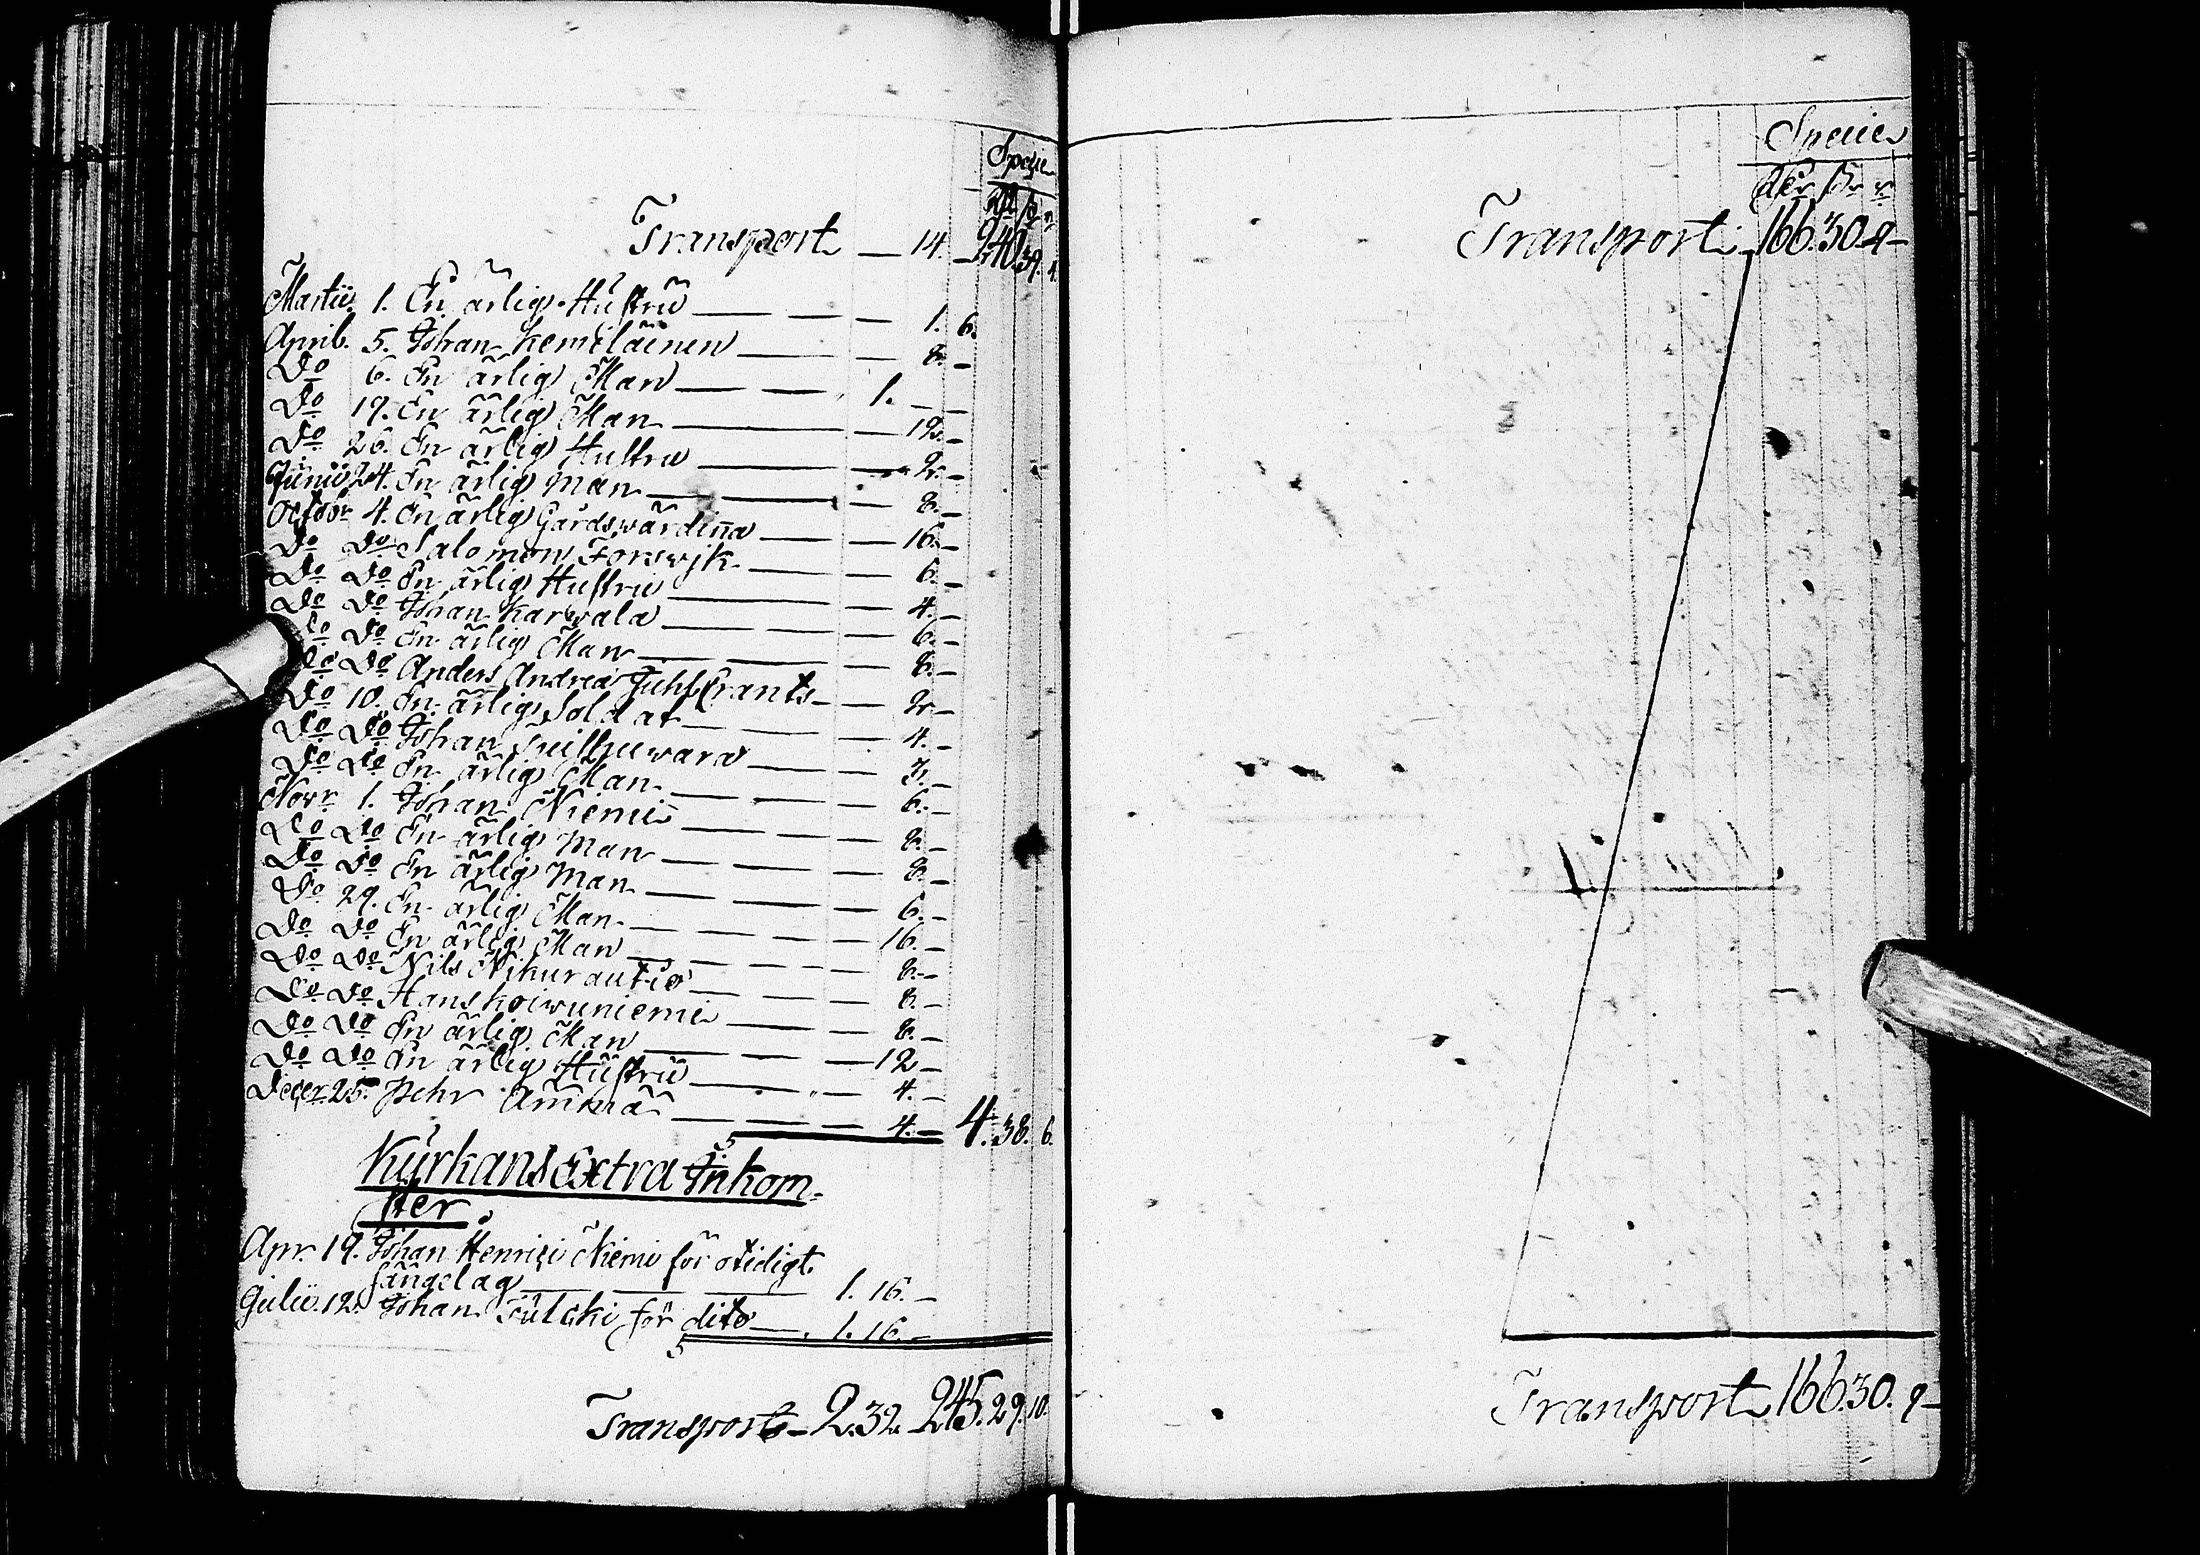 Specie
Transport — 14. — 240.39. 4.
Martii. 1. En ärlig Hustru — — — 1. 6.
April. 5. Johan Kemiläinen — — 8. —
Do 6. En ärlig Man — — 1. — —
Do 19. En ärlig Man — — 12. —
Do 26. En ärlig Hustru — — 2. —
Junii 24. En ärlig Man — — 8. —
Octobr 4. En ärlig Gårdswärdinna — — 16. —
Do Do Salomon Forswik — — 6. —
Do Do En ärlig Hustru — — 4. —
Do Do Johan Karwala — — 6. —
Do Do En ärlig Man — — 8. —
Do Do Anders Andreæ — 2. —
Do 10. En ärlig Soldat — — 4. —
Do Do Johan — — 3. —
Do Do En ärlig Man — — 6. —
Novr 1. Johan Niemi — — 8. —
Do Do En ärlig Man — — 8. —
Do Do En ärlig Man — — 6. —
Do 29. En ärlig Man — — 16. —
Do Do En ärlig Man — — 8. —
Do Do Nils — — 8. —
Do Do Hans Koiwuniemi — — 8. —
Do Do En ärlig Man — — 12 —
Do Do En ärlig Hustru — — 4. —
Decer 25. Pehr Ämmä — — 4. — 4. 38. 6.
Kyrkans Extra Inkom-
ster
Apr. 19. Johan Henrici Niemi för otidigt
sängelag — — 1. 16. —
Julii. 12. Johan för dito — 1. 16. —
Transport — 2. 32. 245. 29. 10.
Specie
dlr
Transport 166.30.9 —
Transport 166.30. 9 —